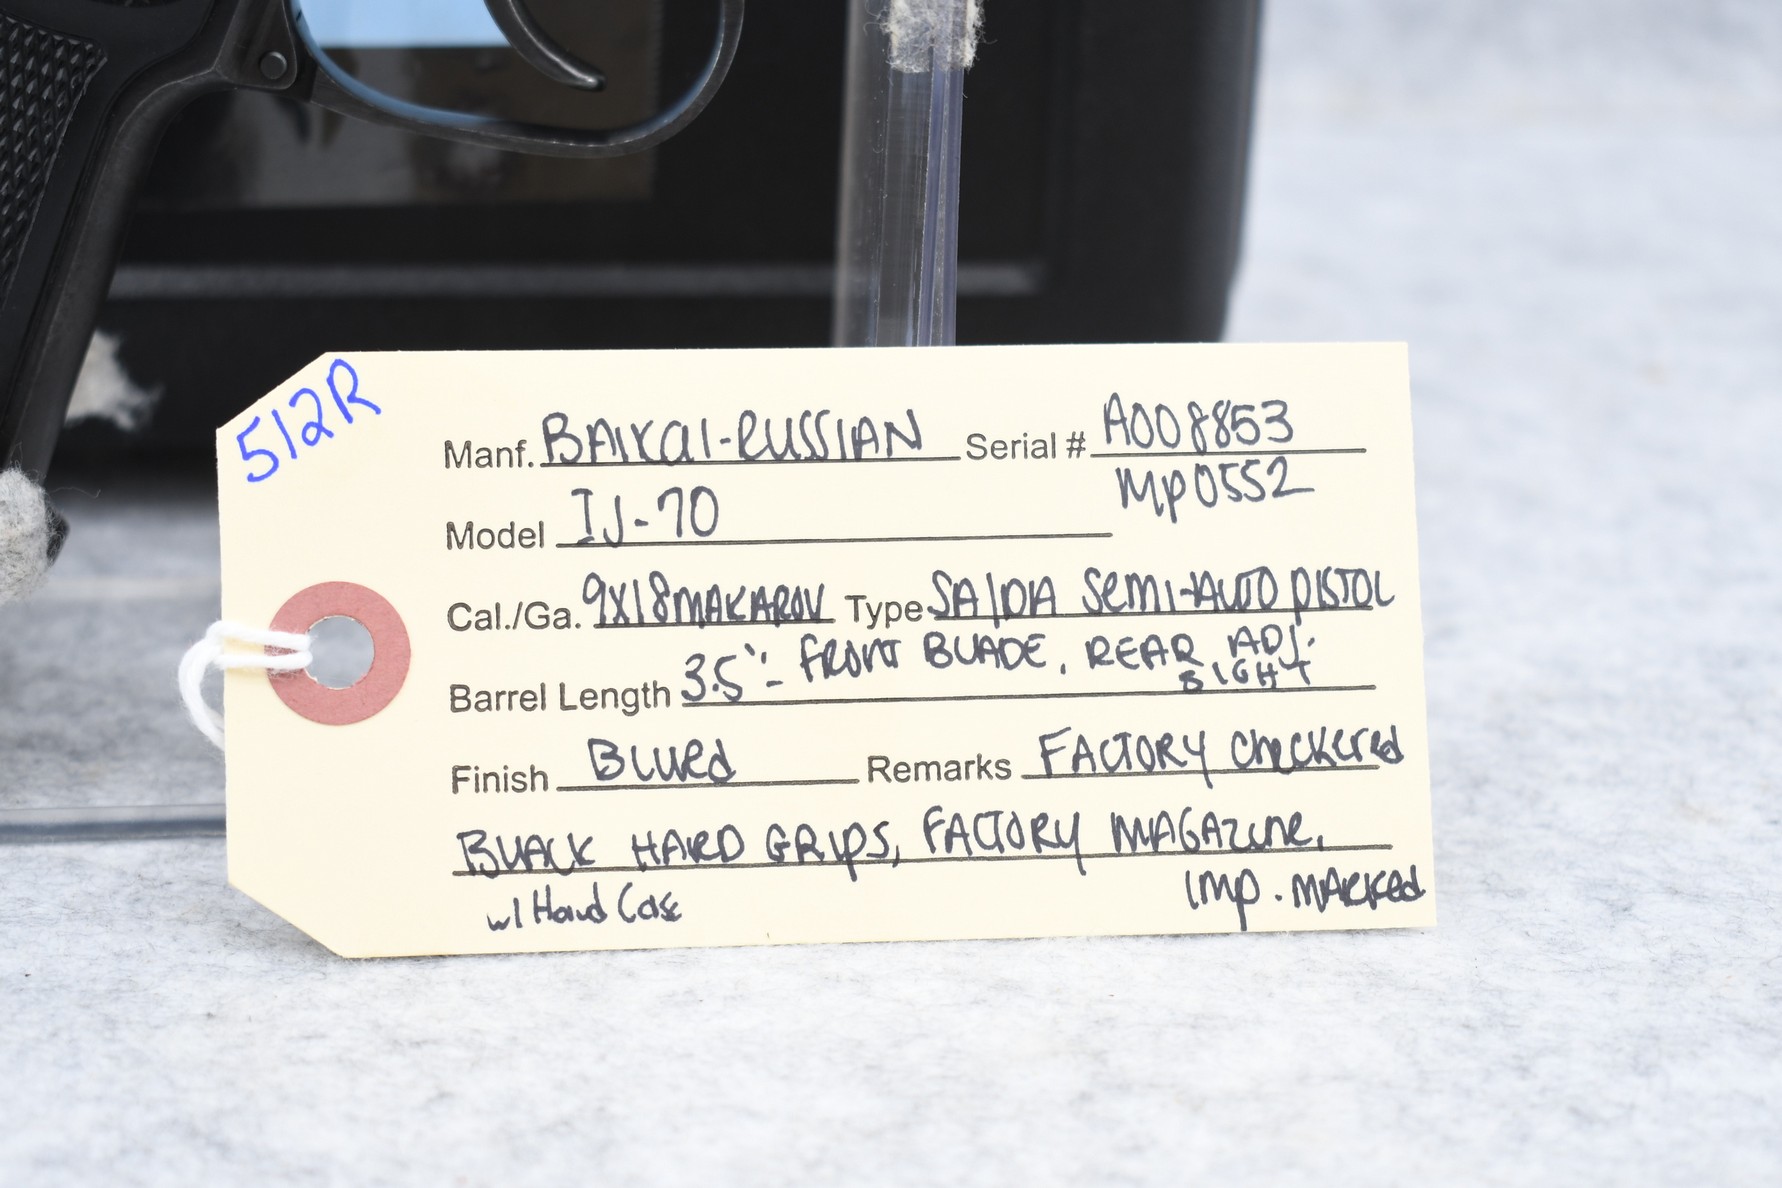 512R
Manf. BAIKAl-RUSSIAN Serial # A008853
MP0552
Model IJ-70
Cal./Ga. 9X18MAKAROV Type SA/DA SEMI-AUTO PISTOL
Barrel Length 3.5"- FRONT BLADE, REAR ADJ.
SIGHT
Finish Blued Remarks FACTORY Checkered
BLACK HARD GRIPS, FACTORY MAGAZINE,
w/ Hard Case Imp. MARKed